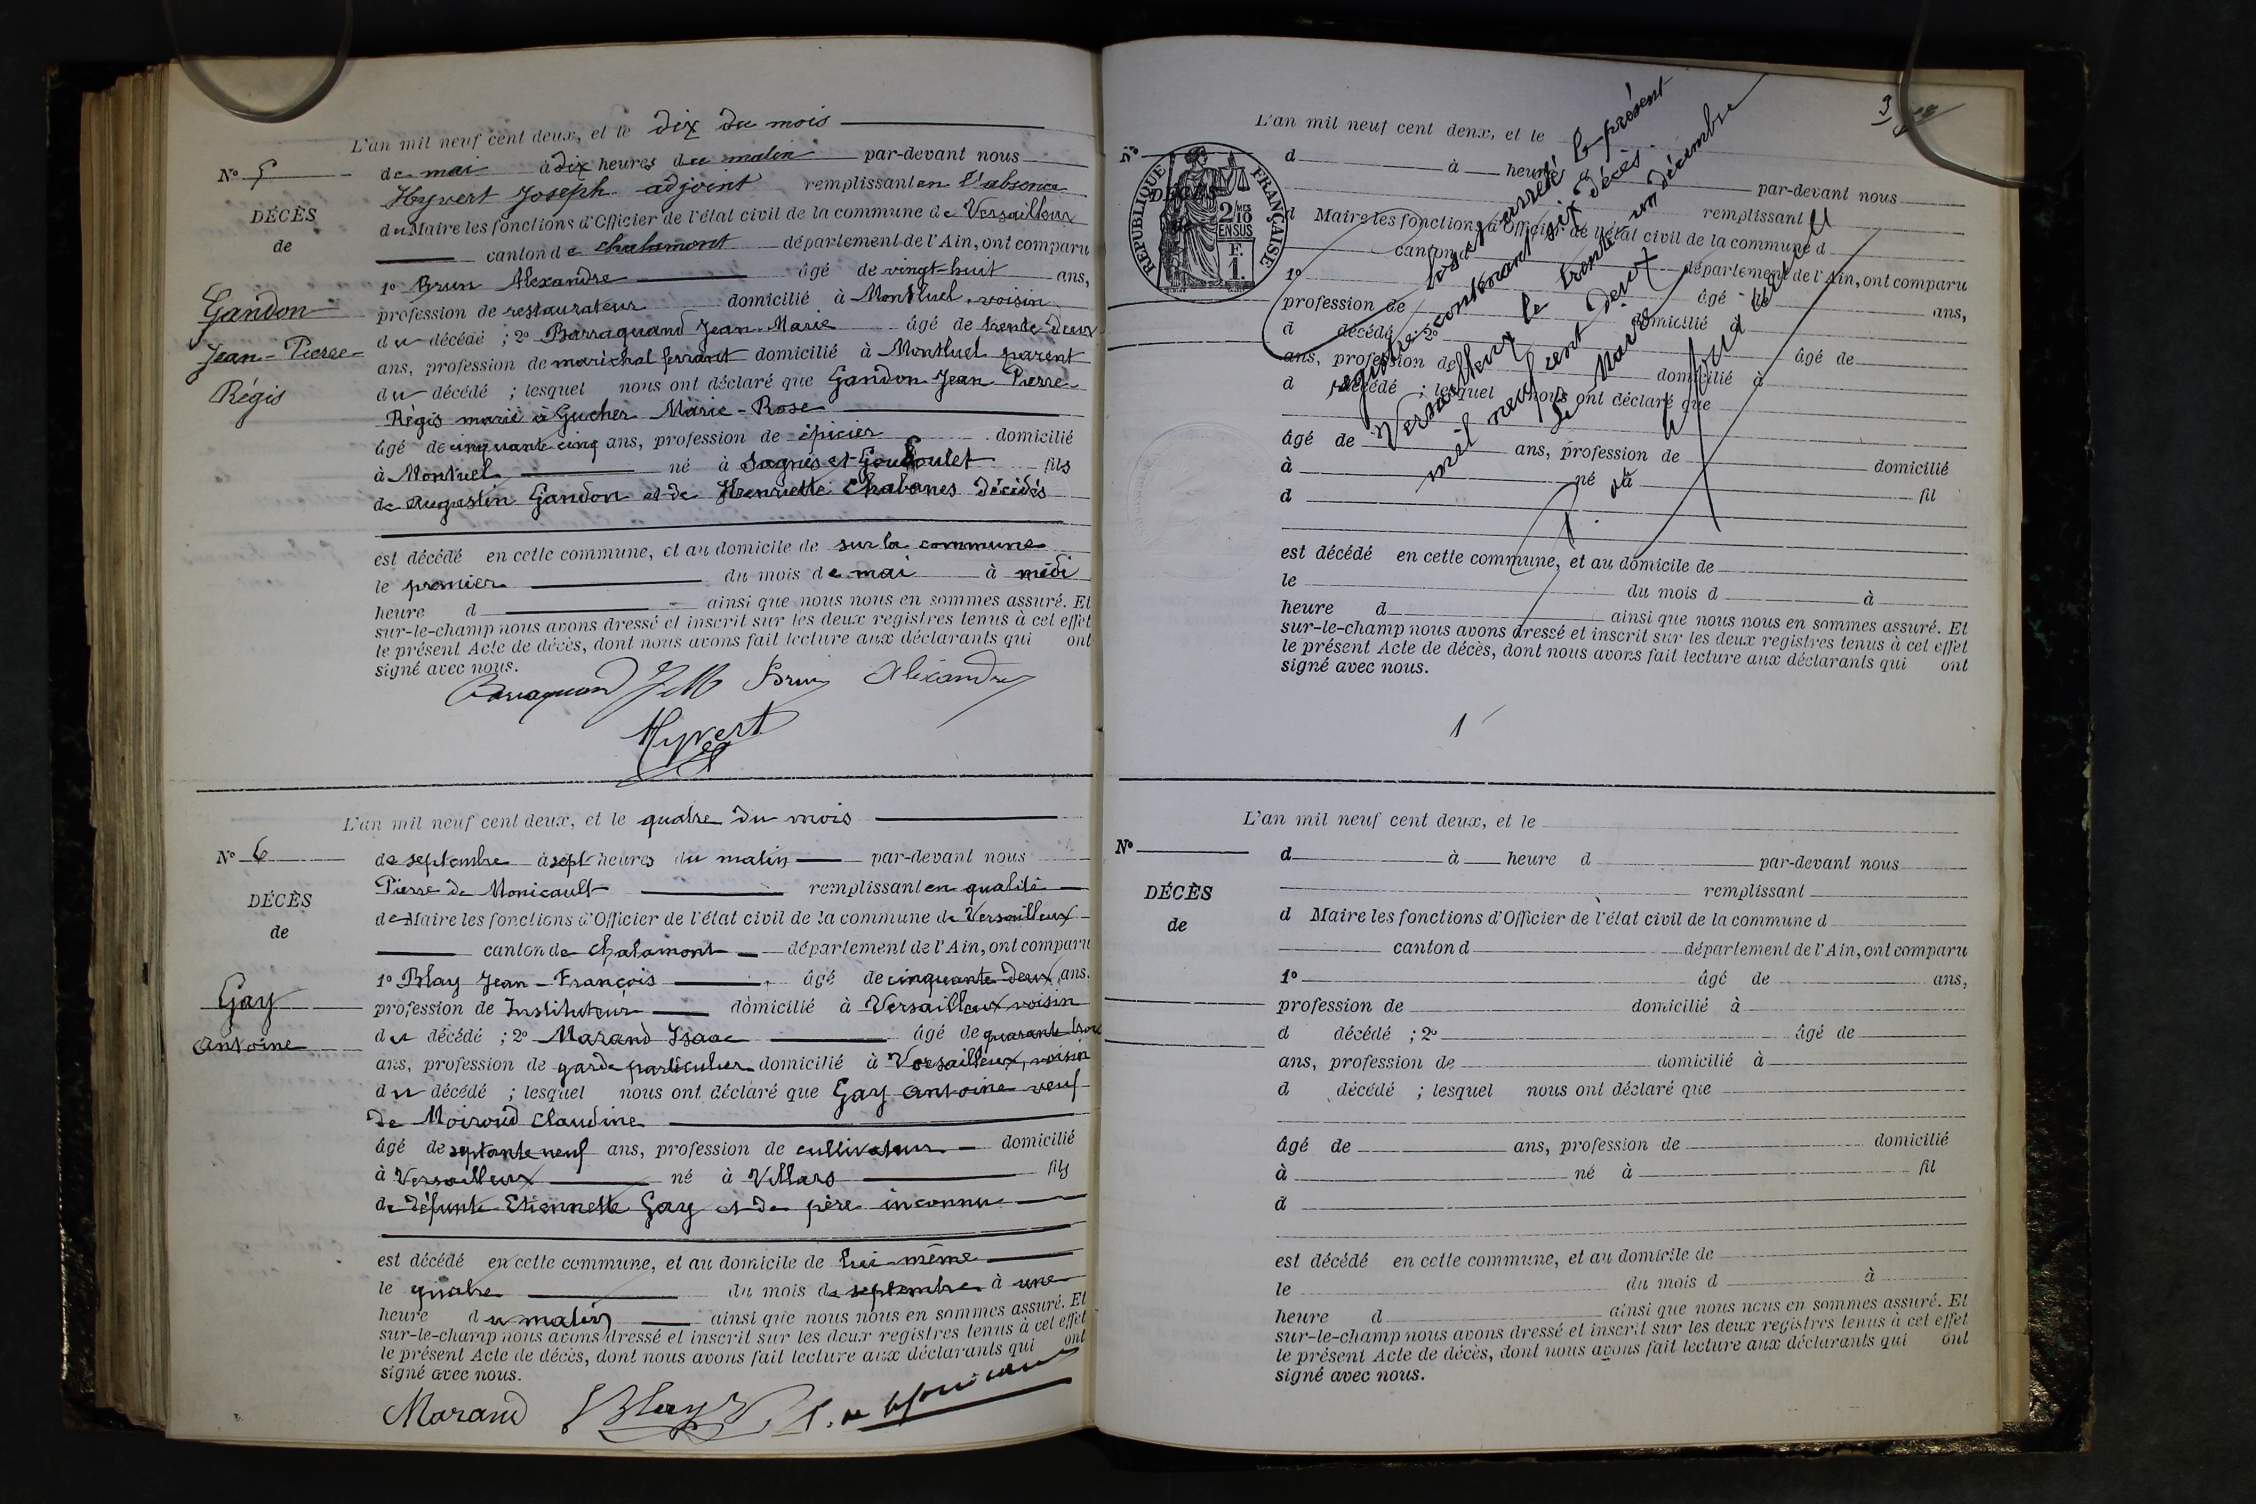 L'an mil neuf cent deux, et le dix du mois
N° 5
de mai à dix heures du matin par-devant nous
Hyvert Joseph adjoint remplissant en l'absence
DÉCÈS
du Maire les fonctions d'Officier de l'état civil de la commune de Versailleux
de
canton de Chalamont département de l'Ain, ont comparu
1° Brun Alexandre âgé de vingt-huit ans,
Gandon
profession de restaurateur domicilié à Montluel, voisin
du décédé ; 2° Barraquand Jean-Marie âgé de trente-deux
Jean-Pierre-
ans, profession de maréchal ferrant domicilié à Montluel parent
Régis
du décédé ; lesquel nous ont déclaré que Gandon Jean Pierre
Régis marié à Gucher Marie-Rose
âgé de cinquante cinq ans, profession de épicier domicilié
à Montuel né à Sagnes et Goudoulet fils
de Augustin Gandon et de Henriette Chabanes décédés
est décédé en cette commune, et au domicile de sur la commune
le premier du mois de mai à midi
heure d ainsi que nous nous en sommes assuré. Et
sur-le-champ nous avons dressé et inscrit sur les deux registres tenus à cet effet
le présent Acte de décès, dont nous avons fait lecture aux déclarants qui ont
signé avec nous.
Barraquand J M Brun Alexandre
Hyvert
L'an mil neuf cent deux, et le quatre du mois
N° 6
de septembre à sept heures du matin par-devant nous
Pierre de Monicault remplissant en qualité
DÉCÈS
de Maire les fonctions d'Officier de l'état civil de la commune de Versailleux
de
canton de Chalamont département de l'Ain, ont comparu
1° Blay Jean-François âgé de cinquante-deux ans.
Gay
profession de Instituteur domicilié à Versailleux voisin
du décédé ; 2° Marand Isaac âgé de quarante trois
Antoine
ans, profession de garde particulier domicilié à Versailleux, voisin
du décédé ; lesquel nous ont déclaré que Gay Antoine veuf
de Moiroud Claudine
âgé de septante neuf ans, profession de cultivateur domicilié
à Versailleux né à Villars fils
de défunte Etiennette Gay et de père inconnu
est décédé en cette commune, et au domicile de lui-même
le quatre du mois de septembre à une
heure du matin ainsi que nous nous en sommes assuré. Et
sur-le-champ nous avons dressé et inscrit sur les deux registres tenus à cet effet
le présent Acte de décès, dont nous avons fait lecture aux déclarants qui ont
signé avec nous.
Marand Blay P. de Monicault
3
L'an mil neuf cent deux, et le
N°
d à heure d par-devant nous
DÉCÈS
remplissant
d Maire les fonctions d'Officier de l'état civil de la commune d
canton d département de l'Ain, ont comparu
1° âgé de ans,
profession de domicilié à
d décédé ; 2° âgé de
ans, profession de domicilié à
d décédé ; lesquel nous ont déclaré que
âgé de ans, profession de domicilié
à né à fil
d
est décédé en cette commune, et au domicile de
le du mois d à
heure d ainsi que nous nous en sommes assuré. Et
sur-le-champ nous avons dressé et inscrit sur les deux registres tenus à cet effet
le présent Acte de décès, dont nous avons fait lecture aux déclarants qui ont
signé avec nous.
RÉPUBLIQUE FRANÇAISE
2/10 MES
EN SUS
1 F.
Clos et arrêté le présent
registre contenant six décès.
Versailleux le trente un décembre
mil neuf cent deux
Le Maire
L'an mil neuf cent deux, et le
N°
d à heure d par-devant nous
remplissant
DÉCÈS
d Maire les fonctions d'Officier de l'état civil de la commune d
de
canton d département de l'Ain, ont comparu
1° âgé de ans,
profession de domicilié à
d décédé ; 2° âgé de
ans, profession de domicilié à
d décédé ; lesquel nous ont déclaré que
âgé de ans, profession de domicilié
à né à fil
d
est décédé en cette commune, et au domicile de
le du mois d à
heure d ainsi que nous nous en sommes assuré. Et
sur-le-champ nous avons dressé et inscrit sur les deux registres tenus à cet effet
le présent Acte de décès, dont nous avons fait lecture aux déclarants qui ont
signé avec nous.